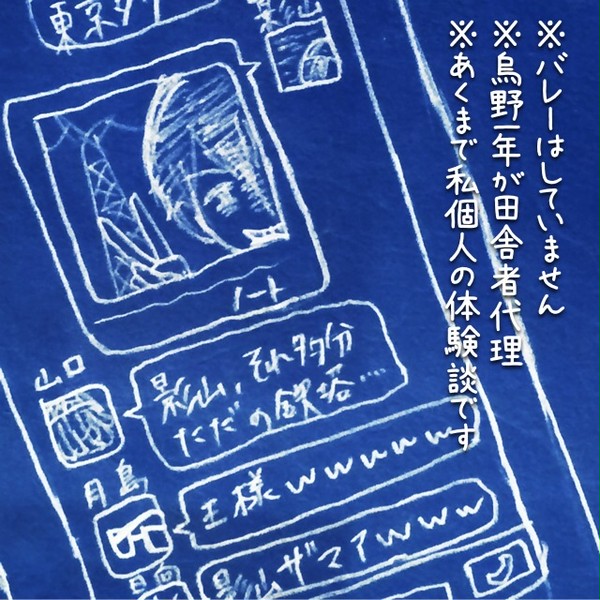 ※バレーはしていません
※烏野一年が田舎者代理
※あくまで私個人の体験談です
東京タワ
影山
ノート
山口
影山、それ多分
ただの鉄塔…
月島
王様wwwwww
日向
影山ザマアwww